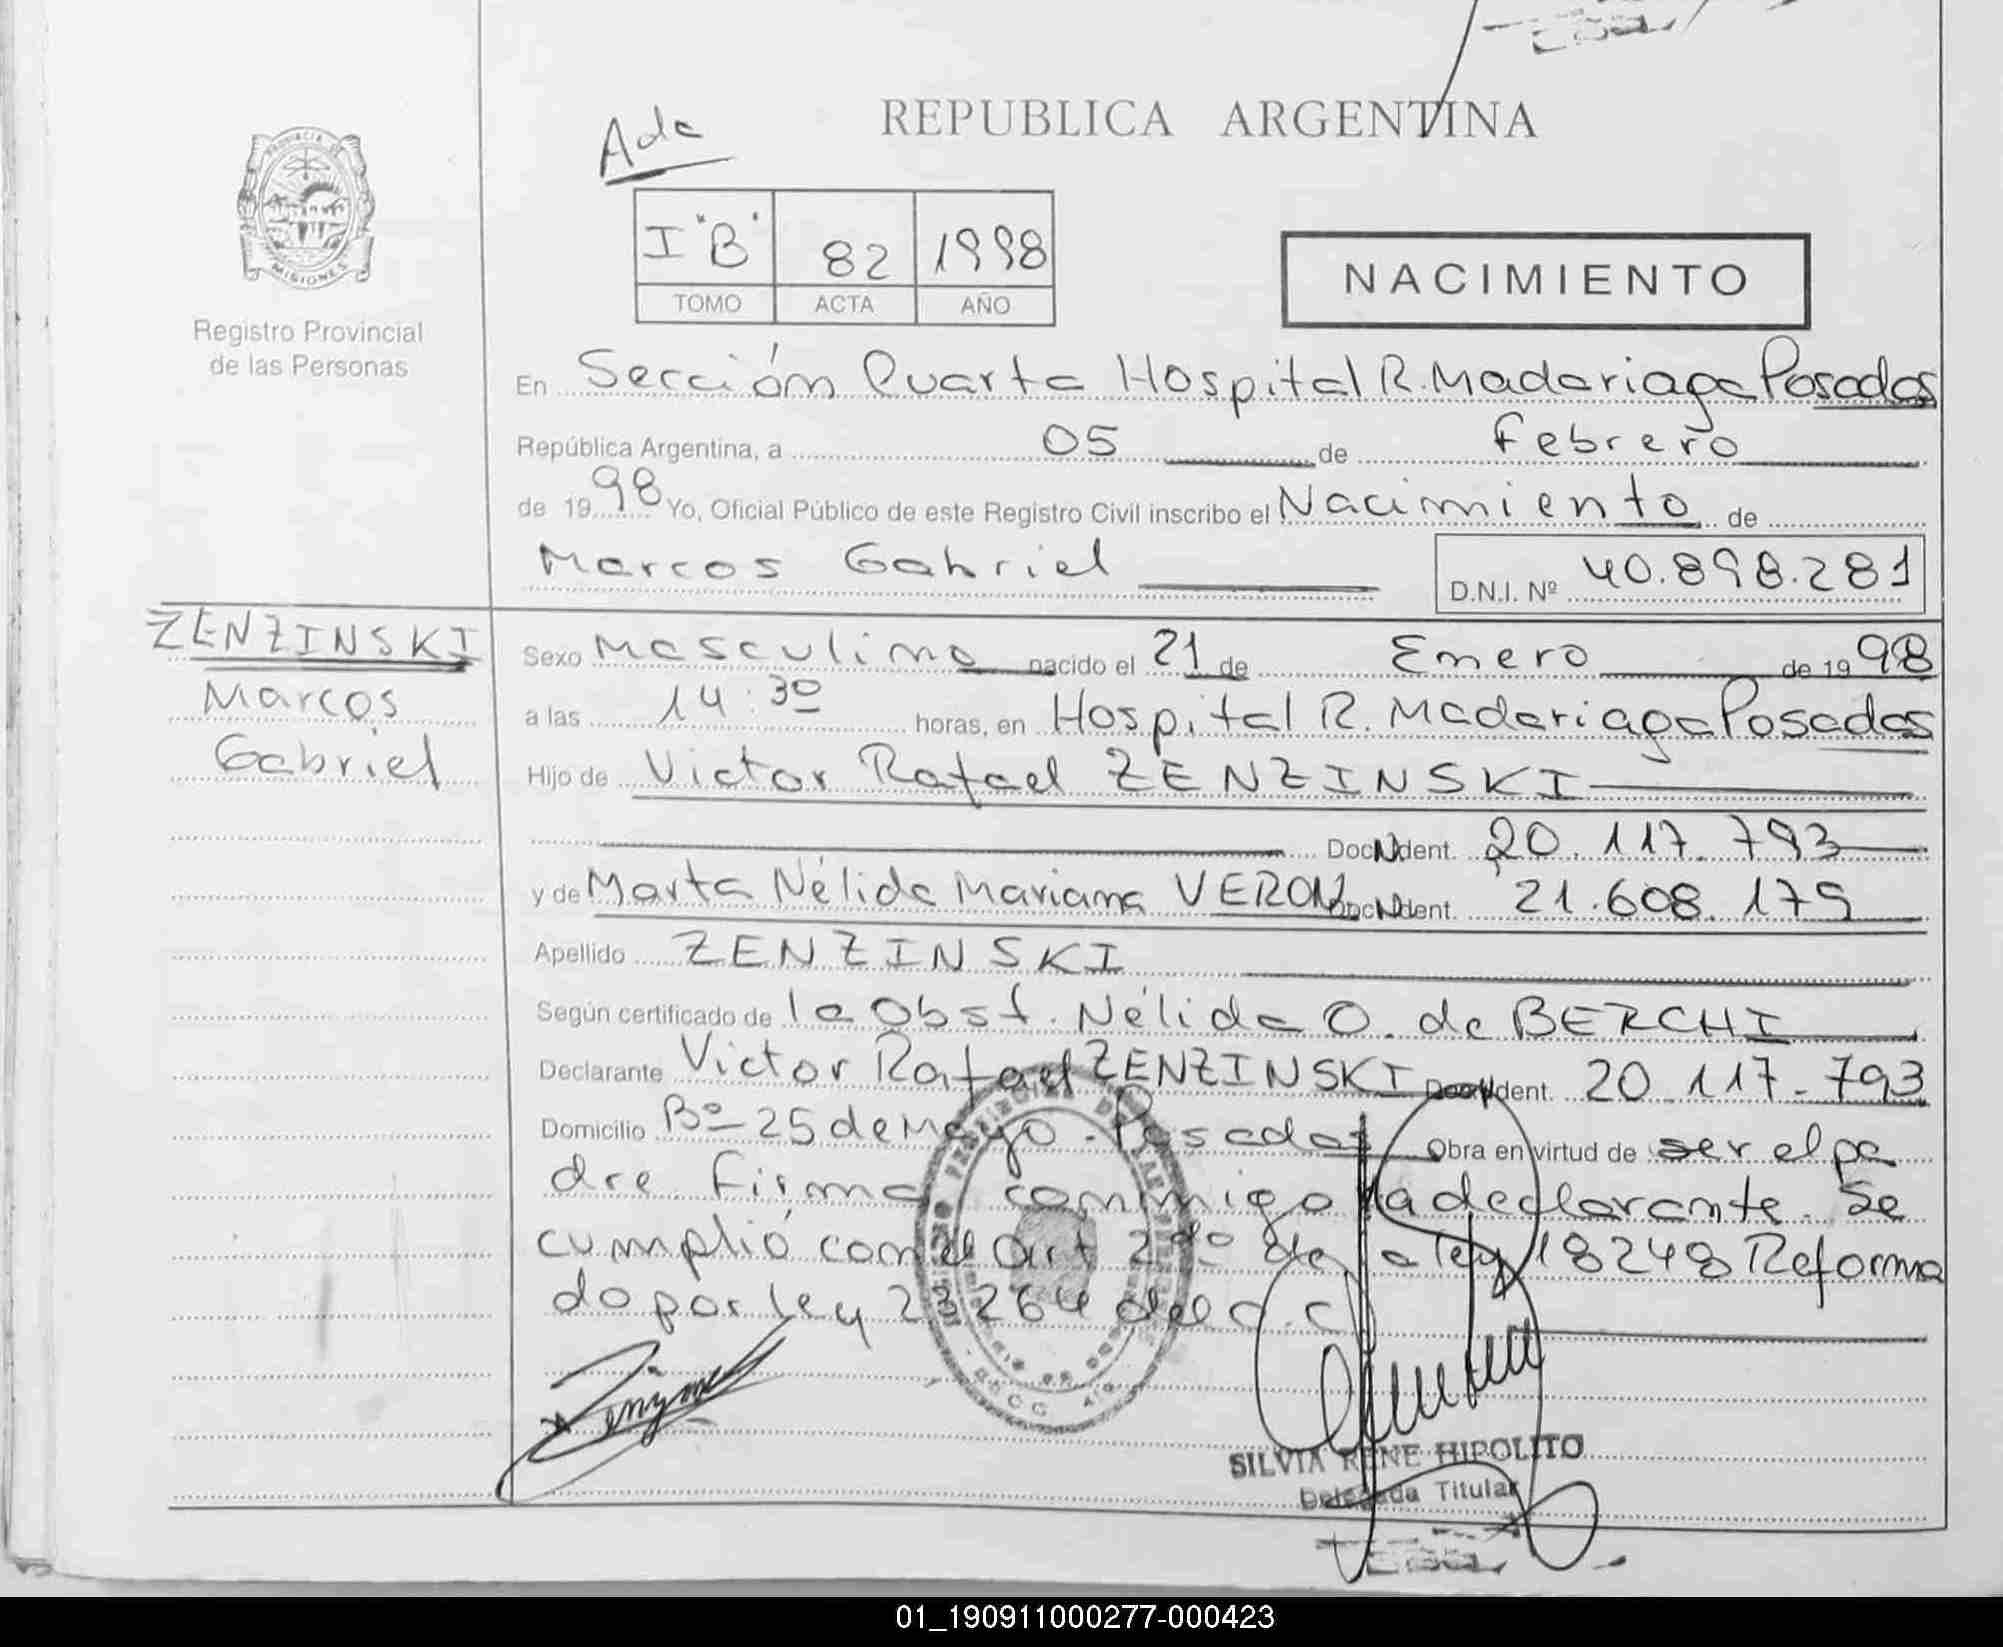 REPUBLICA ARGENTINA
Ada
I "B" 82 1998
TOMO ACTA AÑO
NACIMIENTO
PROVINCIA DE
MISIONES
Registro Provincial
de las Personas
En Sección Cuarta Hospital R. Madariaga Posadas
República Argentina, a 05 de Febrero
de 1998 Yo, Oficial Público de este Registro Civil inscribo el Nacimiento de
Marcos Gabriel D.N.I. Nº 40.898.281
ZENZINSKI
Marcos
Gabriel
Sexo Masculino nacido el 21 de Enero de 1998
a las 14:30 horas, en Hospital R. Madariaga Posadas
Hijo de Victor Rafael ZENZINSKI
Doc. Ident. 20.117.793
y de Marta Nélida Mariana VERON Doc. Ident. 21.608.179
Apellido ZENZINSKI
Según certificado de la Obst. Nélida O. de BERCHI
Declarante Victor Rafael ZENZINSKI Doc. Ident. 20.117.793
Domicilio Bº 25 de Mayo - Posadas Obra en virtud de ser el pa
dre Firma conmigo la declarante. Se
cumplió con el art 2do de la ley 18248 Reforma
do por ley 23264 del C.C
SILVIA RENE HIPOLITO
Delegada Titular
01_190911000277-000423